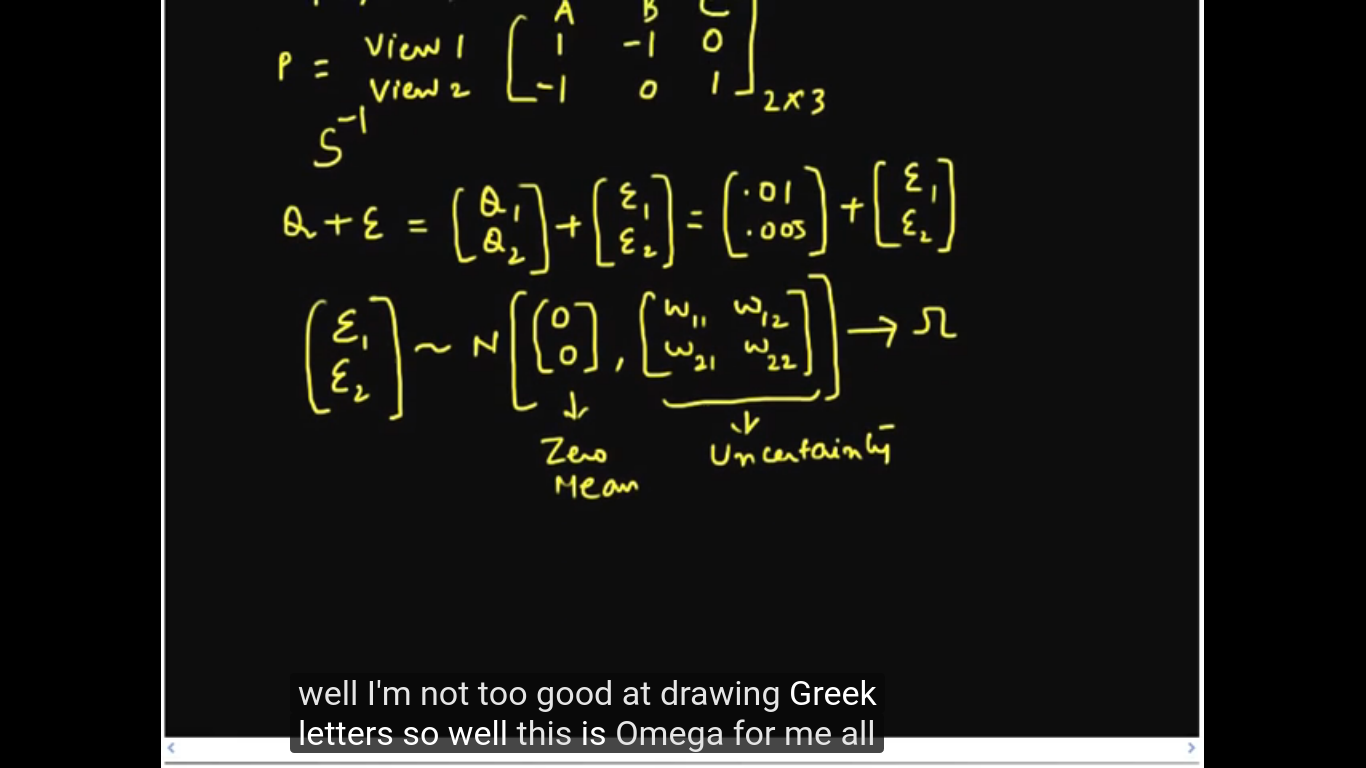 A B C
P = View 1 [ 1 -1 0 ]
View 2 [ -1 0 1 ] 2x3
S^-1
Q + ε = [Q1 Q2] + [ε1 ε2] = [.01 .005] + [ε1 ε2]
[ε1 ε2] ~ N [ [0 0] , [w11 w12 w21 w22] ] → Ω
↓ ↓
Zero Uncertainty
Mean
well I'm not too good at drawing Greek
letters so well this is Omega for me all